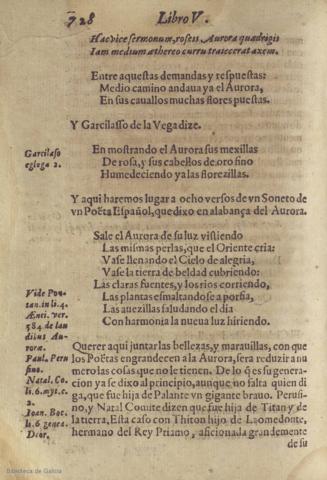 728 Libro V.
Hac vice sermonum, roseis Aurora quadrigis
Iam medium æthereo cursu traiecerat axem.
Entre aquestas demandas y respuestas:
Medio camino andaua ya el Aurora,
En sus cauallos muchas flores puestas.
Y Garcilasso de la Vega dize.
Garcilaso
egloga 2.
En mostrando el Aurora sus mexillas
De rosa, y sus cabellos de oro fino
Humedeciendo ya las florezillas.
Y aqui haremos lugar a ocho versos de vn Soneto de
vn Poëta Español, que dixo en alabança del Aurora.
Sale el Aurora de su luz vistiendo
Las mismas perlas, que el Oriente cria:
Vase llenando el Cielo de alegria,
Vase la tierra de beldad cubriendo:
Las claras fuentes, y los rios corriendo,
Las plantas esmaltandose a porfia,
Las auezillas saludando el dia
Con harmonia la nueua luz hiriendo.
Vide Pon-
tan. in li. 4.
Æneí. ver.
584. de lau
dibus Au-
rora.
Paul. Peru
sino.
Natal. Co.
li. 6. myt. c.
2.
Ioan. Boc.
li. 6 genea.
Deor.
Querer aqui juntar las bellezas, y marauillas, con que
los Poëtas engrandecen a la Aurora, sera reduzir a nu
mero las cosas que no le tienen. De lo q̃ es su genera-
cion ya se dixo al principio, aunque no falta quien di
ga, que fue hija de Palante vn gigante brauo. Perusi-
no, y Natal Comite dizen que fue hija de Titan y de
la tierra, Esta caso con Thiton hijo de Laomedonte,
hermano del Rey Priamo, aficionada grandemente
de su
Biblioteca de Galicia